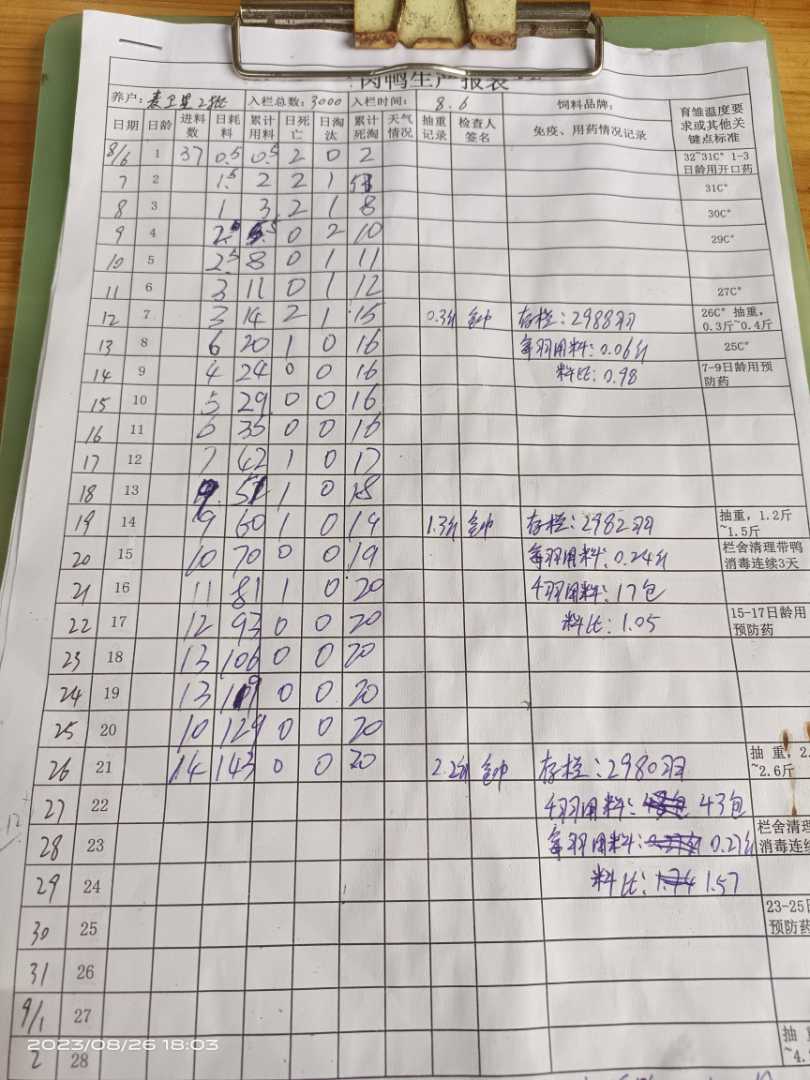 肉鸭生产报表
养户: 2批 入栏总数: 3000 入栏时间: 8.6 饲料品牌:
日期 日龄 进料数 日耗料 累计用料 日死亡 日淘汰 累计死淘 天气情况 抽重记录 检查人签名 免疫、用药情况记录 育雏温度要求或其他关键点标准
8/6 1 37 0.5 0.5 2 0 2 32~31C° 1-3日龄用开口药
7 2 1.5 2 2 1 31C°
8 3 1 3 2 1 8 30C°
9 4 2.5 5.5 0 2 10 29C°
10 5 2.5 8 0 1 11
11 6 3 11 0 1 12 27C°
12 7 3 14 2 1 15 0.3斤 存栏:2988羽 26C° 抽重,0.3斤~0.4斤
13 8 6 20 1 0 16 每羽用料:0.06斤 25C°
14 9 4 24 0 0 16 料比:0.98 7-9日龄用预防药
15 10 5 29 0 0 16
16 11 6 35 0 0 16
17 12 7 42 1 0 17
18 13 9 51 1 0 18
19 14 9 60 1 0 19 1.3斤 存栏:2982羽 抽重,1.2斤~1.5斤
20 15 10 70 0 0 19 每羽用料:0.24斤 栏舍清理带鸭消毒连续3天
21 16 11 81 1 0 20 千羽用料:17包
22 17 12 93 0 0 20 料比:1.05 15-17日龄用预防药
23 18 13 106 0 0 20
24 19 13 119 0 0 20
25 20 10 129 0 0 20
26 21 14 143 0 0 20 2.2斤 存栏:2980羽 抽重,2.~2.6斤
27 22 千羽用料: 43包
28 23 每羽用料: 0.27斤 栏舍清理消毒连续
29 24 料比: 1.57
30 25 23-25日 预防药
31 26
9/1 27
2 28 抽 ~4.
2023/08/26 18:03